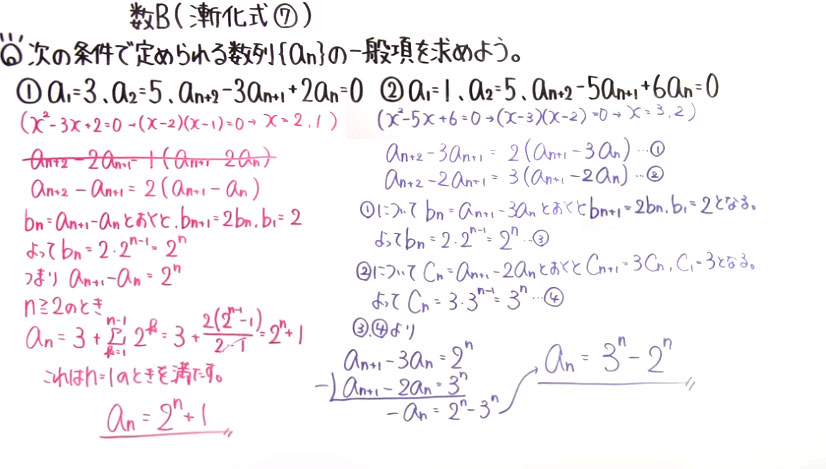 数B(漸化式⑦)
次の条件で定められる数列{an}の一般項を求めよう。
① a₁=3、a₂=5、aₙ₊₂-3aₙ₊₁+2aₙ=0
(x²-3x+2=0→(x-2)(x-1)=0→x=2,1)
aₙ₊₂-2aₙ₊₁=1(aₙ₊₁-2aₙ)
aₙ₊₂-aₙ₊₁=2(aₙ₊₁-aₙ)
bₙ=aₙ₊₁-aₙとおくと、bₙ₊₁=2bₙ、b₁=2
よってbₙ=2・2ⁿ⁻¹=2ⁿ
つまり aₙ₊₁-aₙ=2ⁿ
n≧2のとき
aₙ=3+Σ[k=1,n-1]2ᵏ=3+2(2ⁿ⁻¹-1)/(2-1)=2ⁿ+1
これはn=1のときを満たす。
aₙ=2ⁿ+1
② a₁=1、a₂=5、aₙ₊₂-5aₙ₊₁+6aₙ=0
(x²-5x+6=0→(x-3)(x-2)=0→x=3,2)
aₙ₊₂-3aₙ₊₁=2(aₙ₊₁-3aₙ)…①
aₙ₊₂-2aₙ₊₁=3(aₙ₊₁-2aₙ)…②
①についてbₙ=aₙ₊₁-3aₙとおくとbₙ₊₁=2bₙ、b₁=2となる。
よってbₙ=2・2ⁿ⁻¹=2ⁿ…③
②についてCₙ=aₙ₊₁-2aₙとおくとCₙ₊₁=3Cₙ、C₁=3となる。
よってCₙ=3・3ⁿ⁻¹=3ⁿ…④
③、④より
aₙ₊₁-3aₙ=2ⁿ
-)aₙ₊₁-2aₙ=3ⁿ
-aₙ=2ⁿ-3ⁿ
aₙ=3ⁿ-2ⁿ